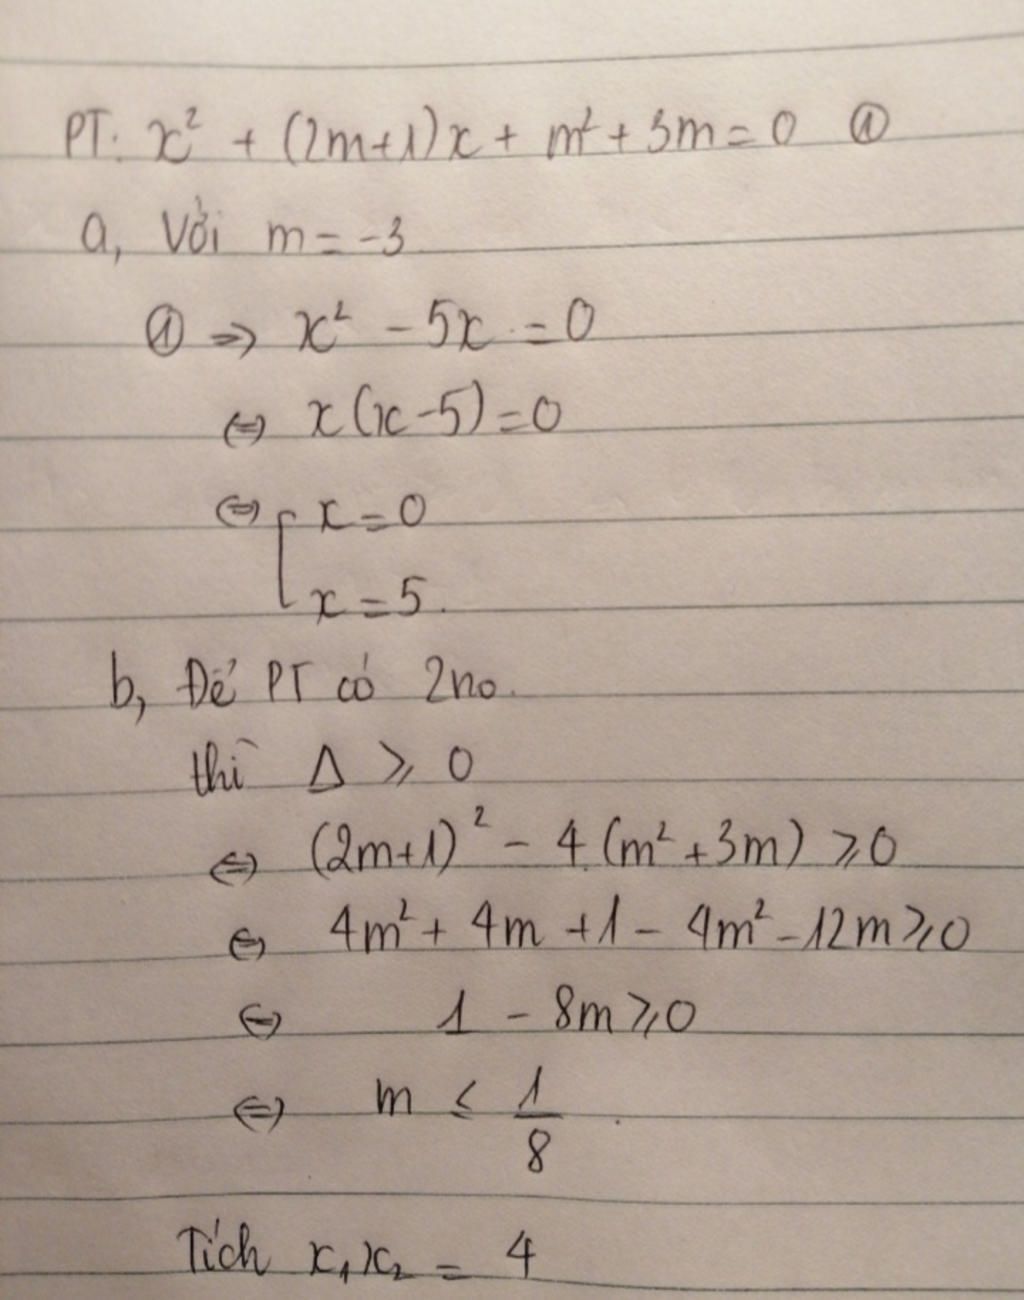 PT: x² + (2m+1)x + m² + 3m = 0 ①
a, Với m = -3
① => x² - 5x = 0
<=> x(x-5) = 0
<=> [ x = 0
x = 5.
b, Để PT có 2no.
thì Δ ⩾ 0
<=> (2m+1)² - 4.(m² + 3m) ⩾ 0
<=> 4m² + 4m + 1 - 4m² - 12m ⩾ 0
<=> 1 - 8m ⩾ 0
<=> m ≤ 1/8.
Tích x₁x₂ = 4